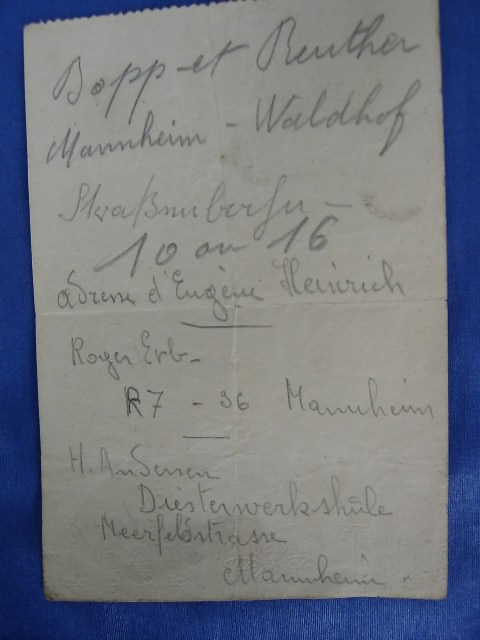 Bopp et Reuther
Mannheim - Waldhof
Straßenbahn -
10 ou 16
adresse d'Eugène Heinrich
Roger Erb -
R7 - 36 Mannheim
H. Andersen
Diesterwerkshüle
Meerfeldstrasse
Mannheim.